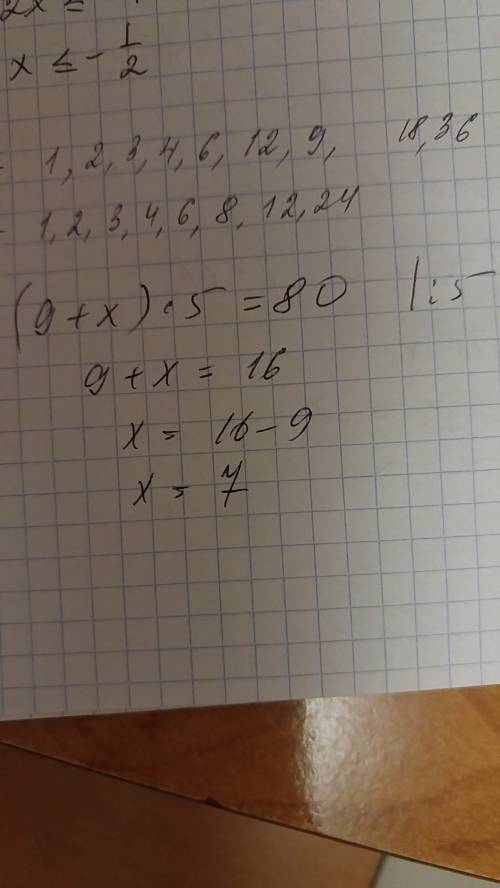 2x ≤
x ≤ - 1/2
1, 2, 3, 4, 6, 12, 9, 18, 36
1, 2, 3, 4, 6, 8, 12, 24
(9 + x) · 5 = 80 | : 5
9 + x = 16
x = 16 - 9
x = 7